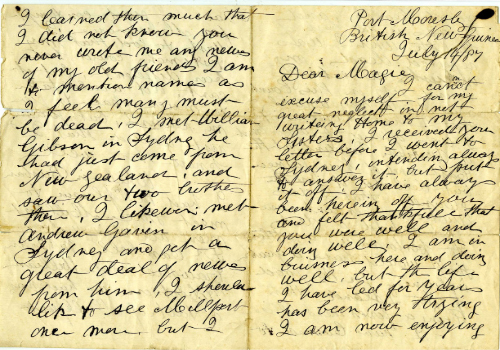 I learned then much that
I did not know you
never wrote me any news
of my old friends I am
to mention names as
I feel many must
be dead, I met William
Gibson in Sydney he
had just come from
New Zealand, and
saw our two brothers
there, I likewise met
Andrew Gaven in
Sydney and got a
great deal of newes
from him, I should
like to see Millport
once more, but I
Port Moresby
British New Guinea
July 14/87
Dear Magie
I cannot
excuse myself for my
great neglect in not
writing Home to my
Sisters, I received your
letter before I went to
Sydney, intendin always
to answer it, but put
it off, I have always
been herein off you
and felt thankfull that
you were well and
doin well, I am in
buisness here and doin
well, but the life
I have led for years
has been very trying
I am now enjoying